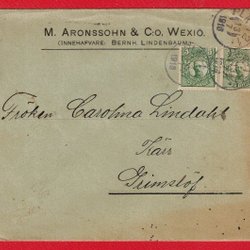 M. Aronssohn & Co. Wexio.
(Innehafvare: Bernh. Lindenbaum)
Fröken Carolina Lindahl
Kärr
Grimslöf